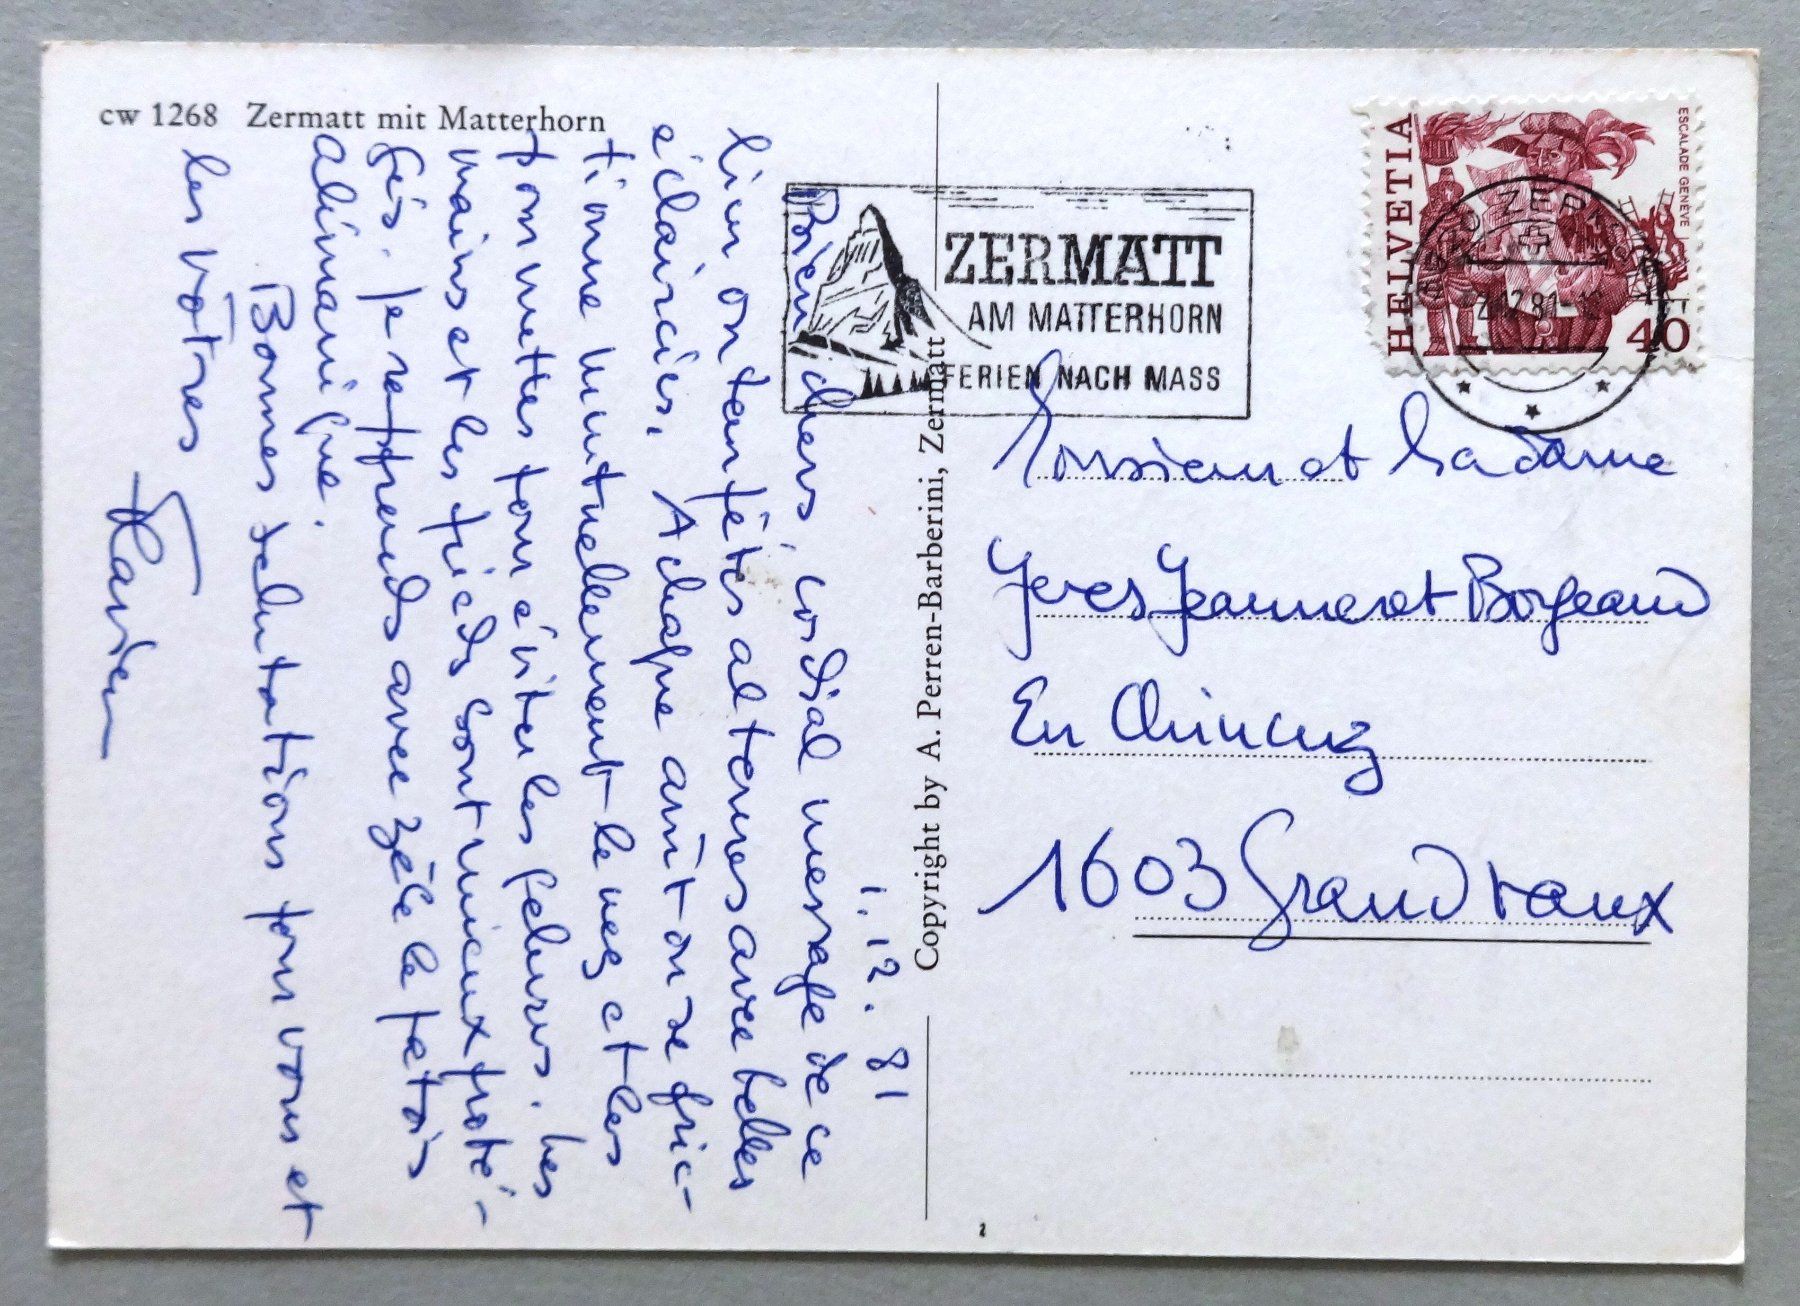 cw 1268 Zermatt mit Matterhorn
1. 12. 81
Bien chers, cordial message de ce
lieu on tempêtes alternes avec belles
éclaircies. A chaque arrêt on se fric-
tionne mutuellement le nez et les
pommettes pour éviter les gelures. Les
mains et les pieds sont mieux proté-
gés. Je reprends avec zèle le patois
alémanique.
Bonnes salutations pour vous et
les vôtres
Flavien
Copyright by A. Perren-Barberini, Zermatt
ZERMATT
AM MATTERHORN
FERIEN NACH MASS
HELVETIA
ESCALADE GENÈVE
40
3920 ZERMATT
Monsieur et Madame
Yves Jeanneret Borgeaud
En
1603 Grandvaux
2